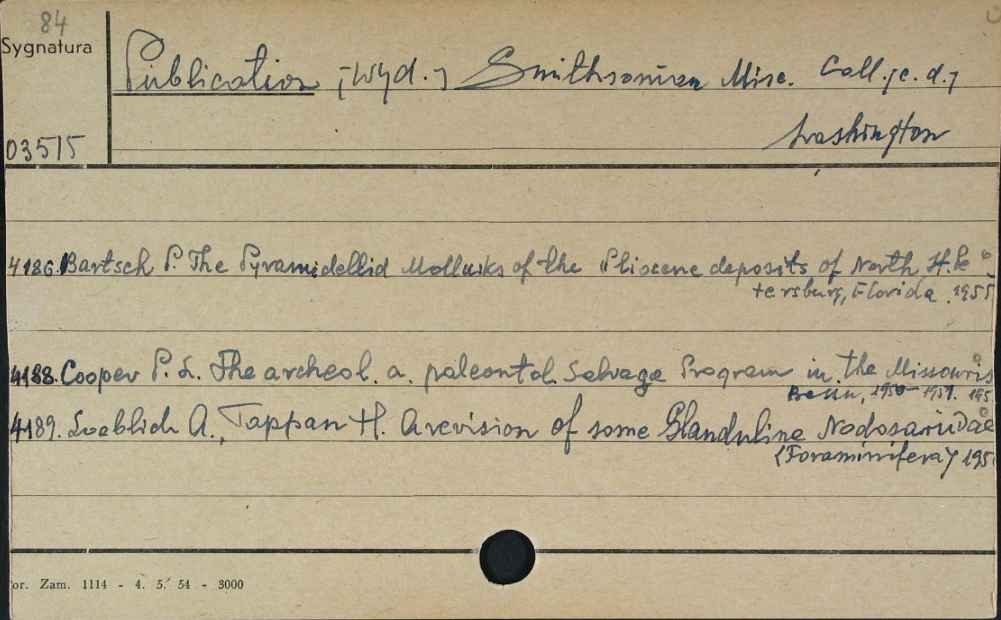 84
Sygnatura
Publication ;[Wyd.] Smithsonian Misc. Coll. [c. d.]
Washington
03515
4186. Bartsch P. The Pyramidellid Mollusks of the Pliocene deposits of North St. Pe
tersburg, Florida. 1955
4188. Cooper P. L. The archeol. a. paleontol. Salvage Program in the Missouris
Basin, 1950-1951. 195
4189. Loeblich A., Tappan H. A revision of some Glanduline Nodosariidae
(Foraminifera) 195
or. Zam. 1114 - 4. 5. 54 - 3000